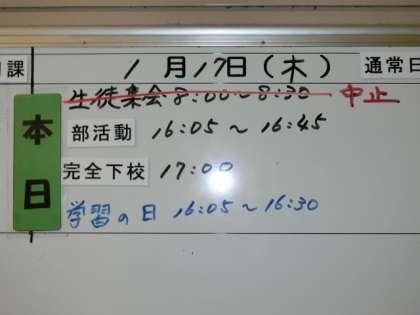 課 1月17日(木) 通常日
本日
生徒集会 8:00~8:30 中止
部活動 16:05~16:45
完全下校 17:00
学習の日 16:05~16:30